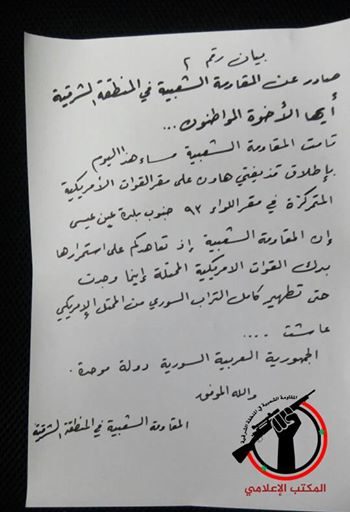 بيان رقم ٢
صادر عن المقاومة الشعبية في المنطقة الشرقية
أيها الأخوة المواطنون ...
قامت المقاومة الشعبية مساء هذا اليوم
بإطلاق قذيفتي هاون على مقر القوات الأمريكية
المتمركزة في مقر اللواء ٩٣ جنوب بلدة عين عيسى
إن المقاومة الشعبية إذ تعاهدكم على استمرارها
بدك القوات الامريكية المحتلة إينما وجدت
حتى تطهير كامل التراب السوري من المحتل الإمريكي
عاشت ....
الجمهورية العربية السورية دولة موحدة .
والله الموفق
المقاومة الشعبية في المنطقة الشرقية
المقاومة الشعبية في المنطقة الشرقية
المكتب الإعلامي